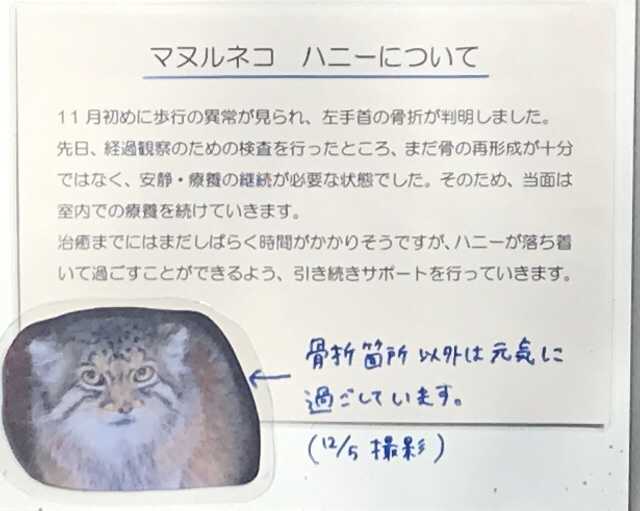 マヌルネコ　ハニーについて
11月初めに歩行の異常が見られ、左手首の骨折が判明しました。
先日、経過観察のための検査を行ったところ、まだ骨の再形成が十分
ではなく、安静・療養の継続が必要な状態でした。そのため、当面は
室内での療養を続けていきます。
治癒までにはまだしばらく時間がかかりそうですが、ハニーが落ち着
いて過ごすことができるよう、引き続きサポートを行っていきます。
骨折箇所以外は元気に
過ごしています。
(12/5 撮影)